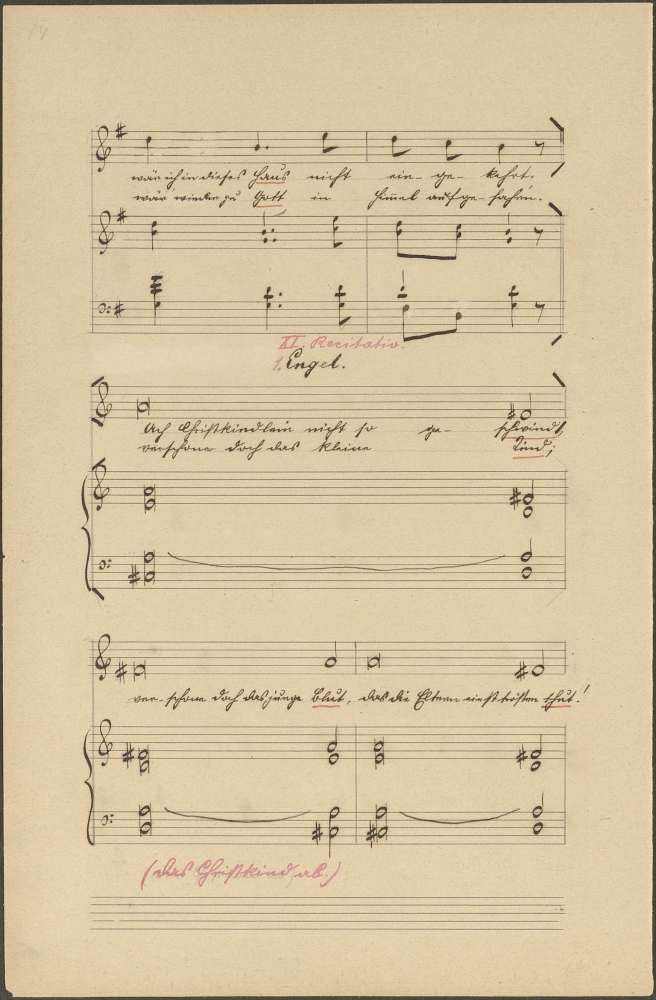 14
wär ich in dieses Haus nicht ein- ge- kehrt.
wär wieder zu Gott in Himmel aufge- fahren.
XI. Recitativ.
1. Engel.
Ach Christkindlein nicht so ge- schwindt,
verschone doch das kleine Kind;
ver- schone doch das junge Blut, das die Eltern einst trösten thut!
(Das Christkind ab.)